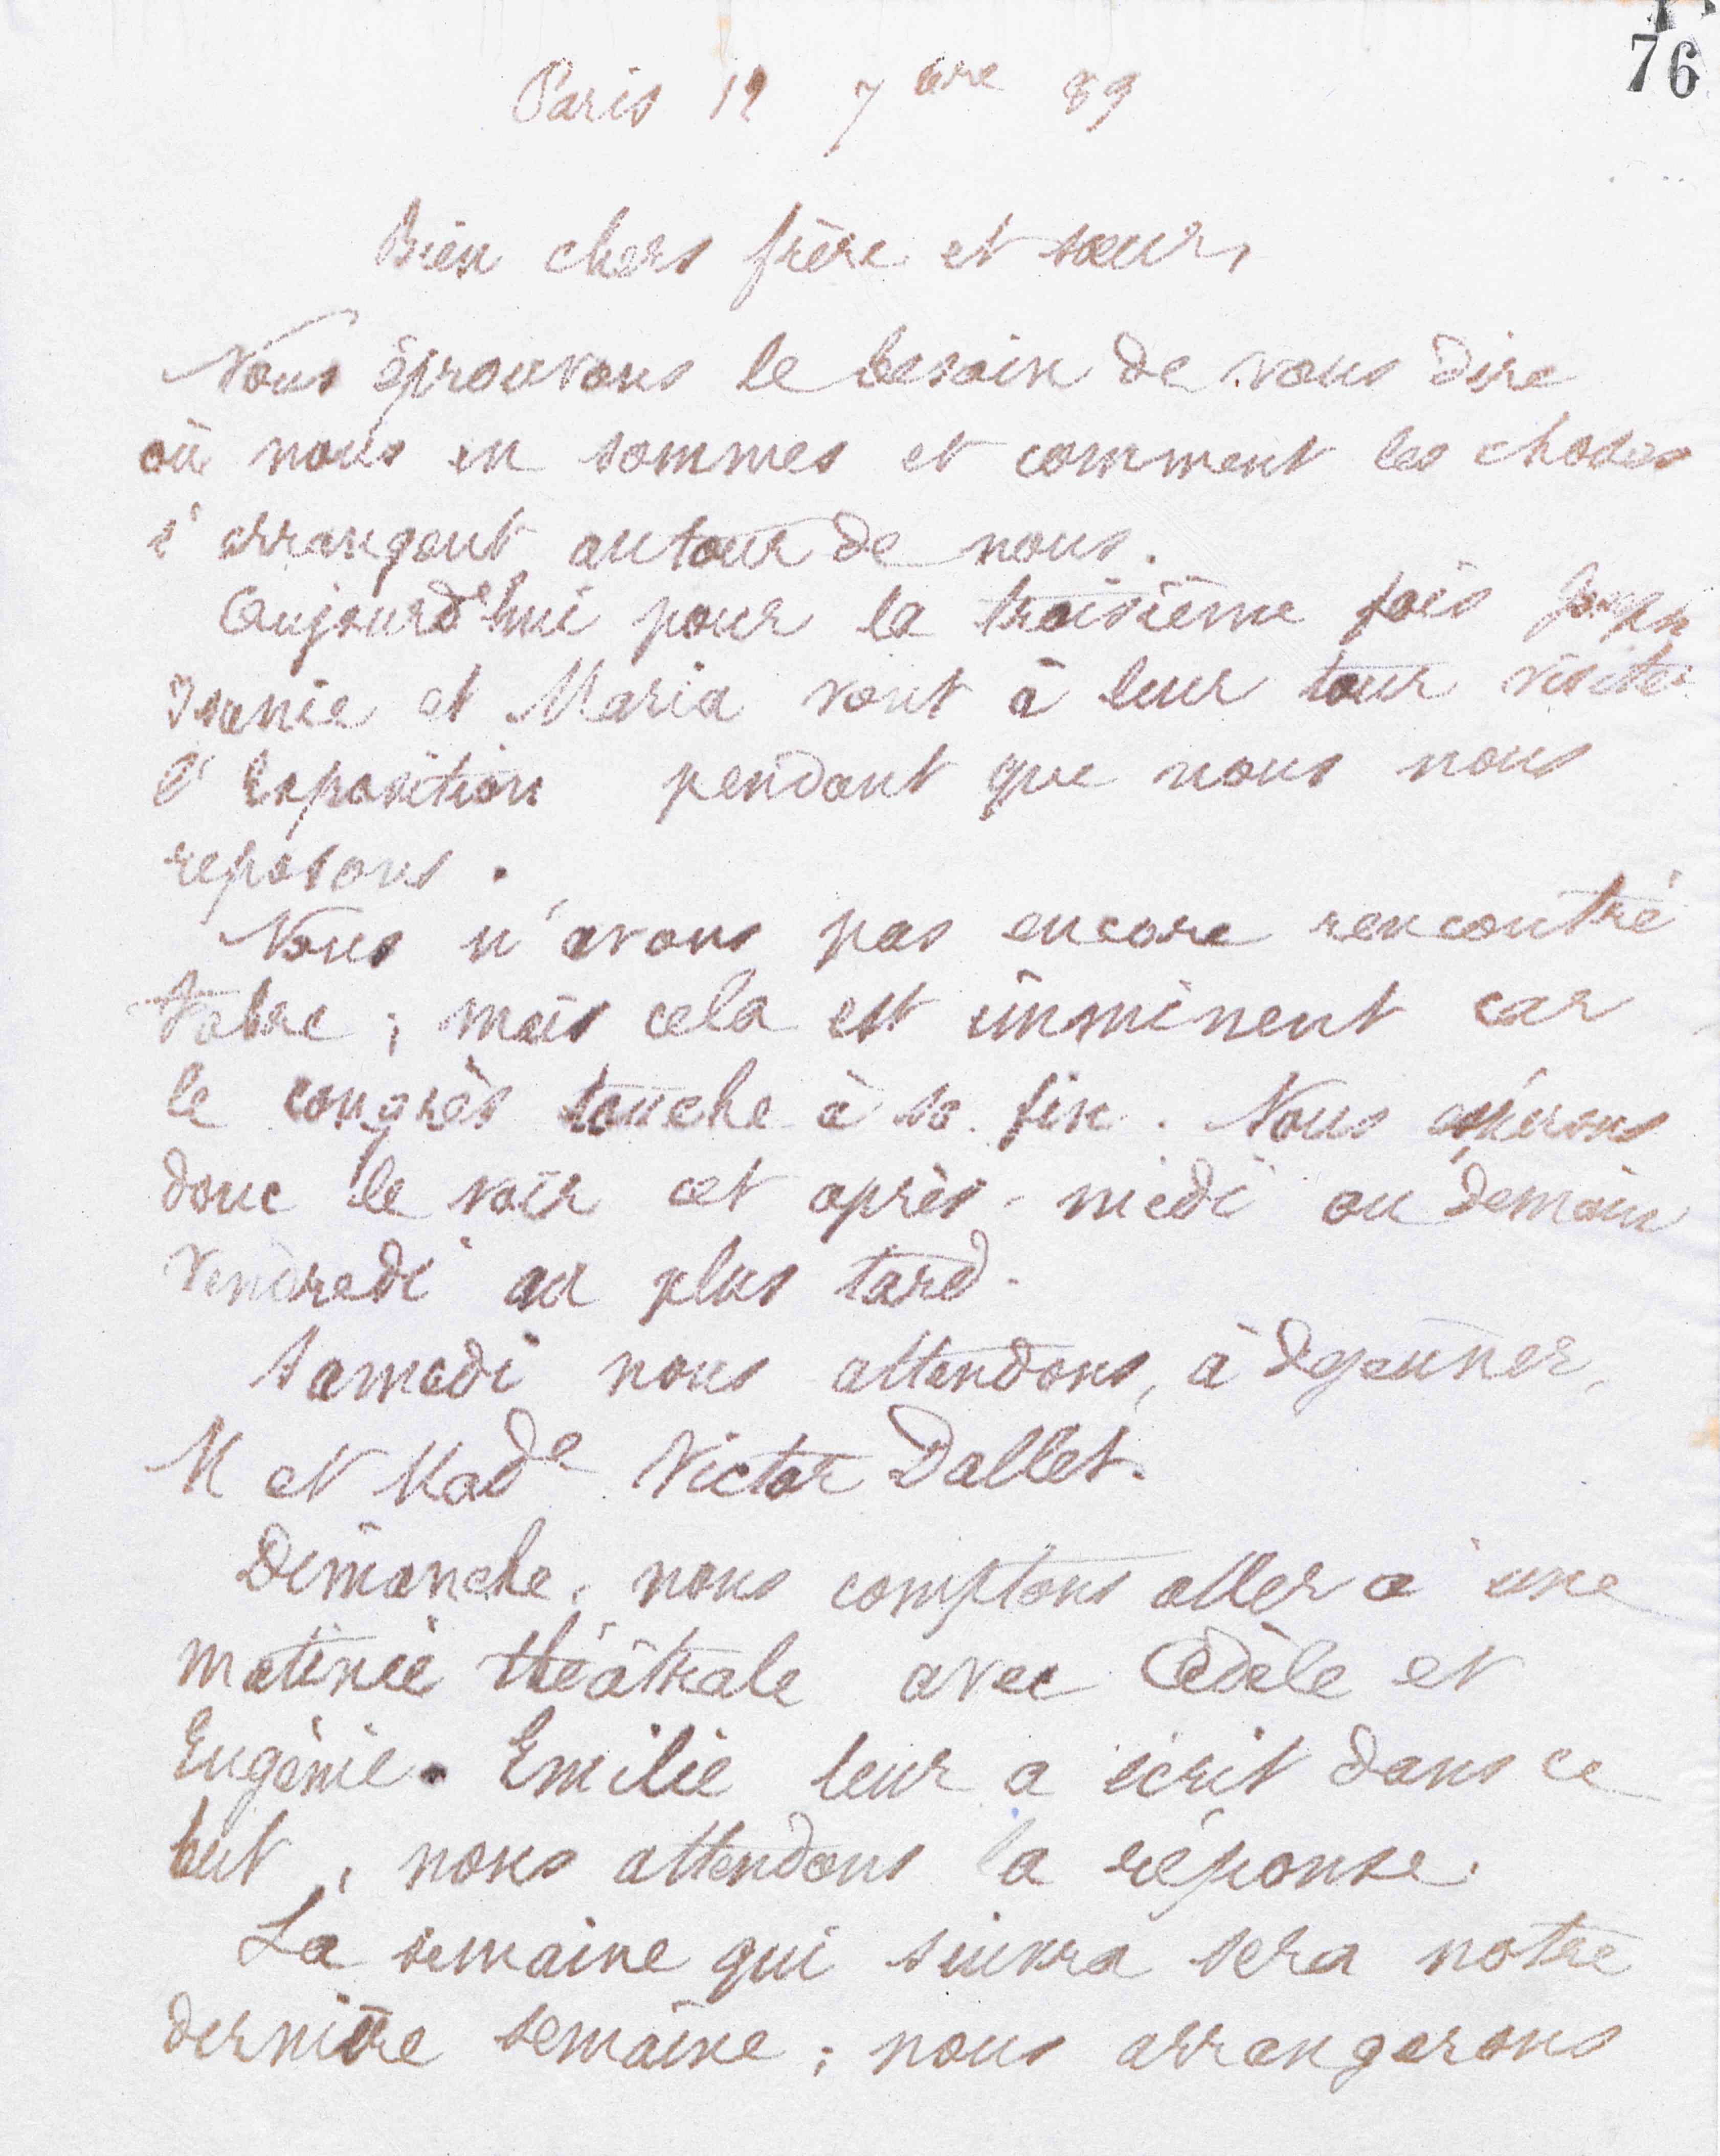 76
Paris 12 7bre 89
Bien chers frère et sœur,
Nous éprouvons le besoin de vous dire
où nous en sommes et comment les choses
s'arrangent autour de nous.
Aujourd'hui pour la troisième fois Joseph
Irénie et Maria vont à leur tour visiter
l'Exposition pendant que nous nous
reposons.
Nous n'avons pas encore rencontré
Fabre ; mais cela est imminent car
le congrès touche à sa fin. Nous espérons
donc le voir cet après-midi ou demain
Vendredi au plus tard.
Samedi nous attendons, à déjeuner,
M et Made Victor Dallet.
Dimanche, nous comptons aller à une
matinée théâtrale avec Adèle et
Eugénie. Emilie leur a écrit dans ce
but, nous attendons la réponse.
La semaine qui suivra sera notre
dernière semaine ; nous arrangerons